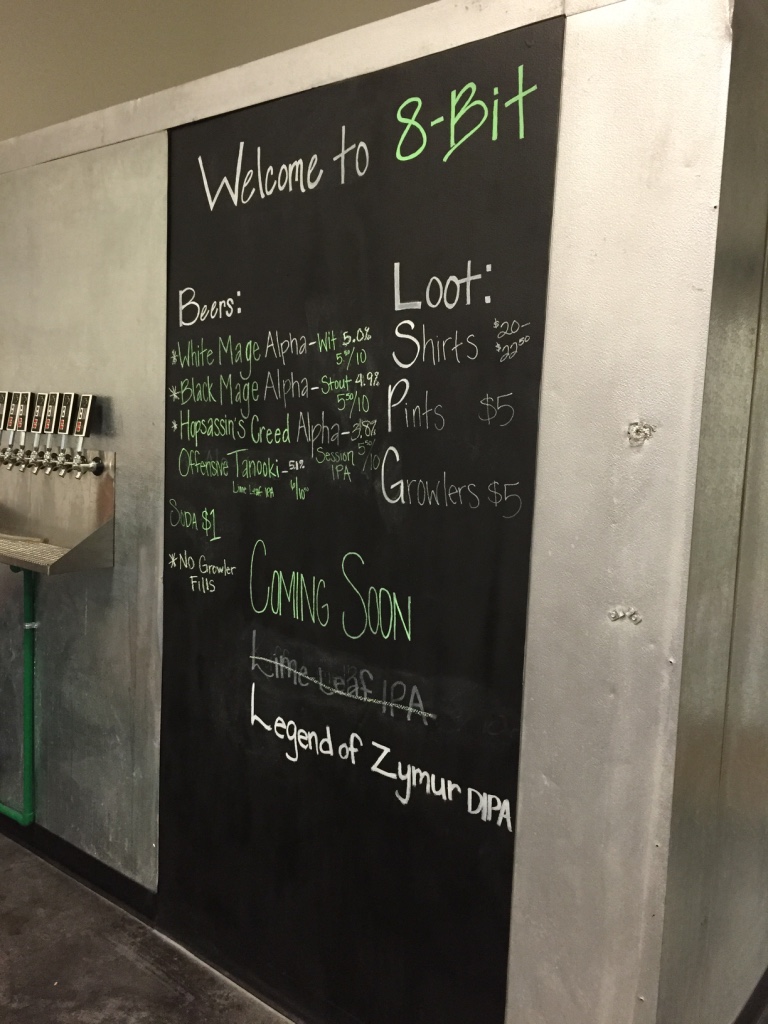 Welcome to 8-Bit
Beers:
*White Mage Alpha-Wit 5.0%
5⁵⁰/10
*Black Mage Alpha-Stout 4.9%
5⁵⁰/10
*Hopsassin's Creed Alpha-3.8%
Session IPA 5⁵⁰/10
Offensive Tanooki-
Lime Leaf IPA
Soda $1
*No Growler
Fills
Loot:
Shirts $20-
$22⁵⁰
Pints $5
Growlers $5
Coming Soon
Lime Leaf IPA
Legend of Zymur DIPA